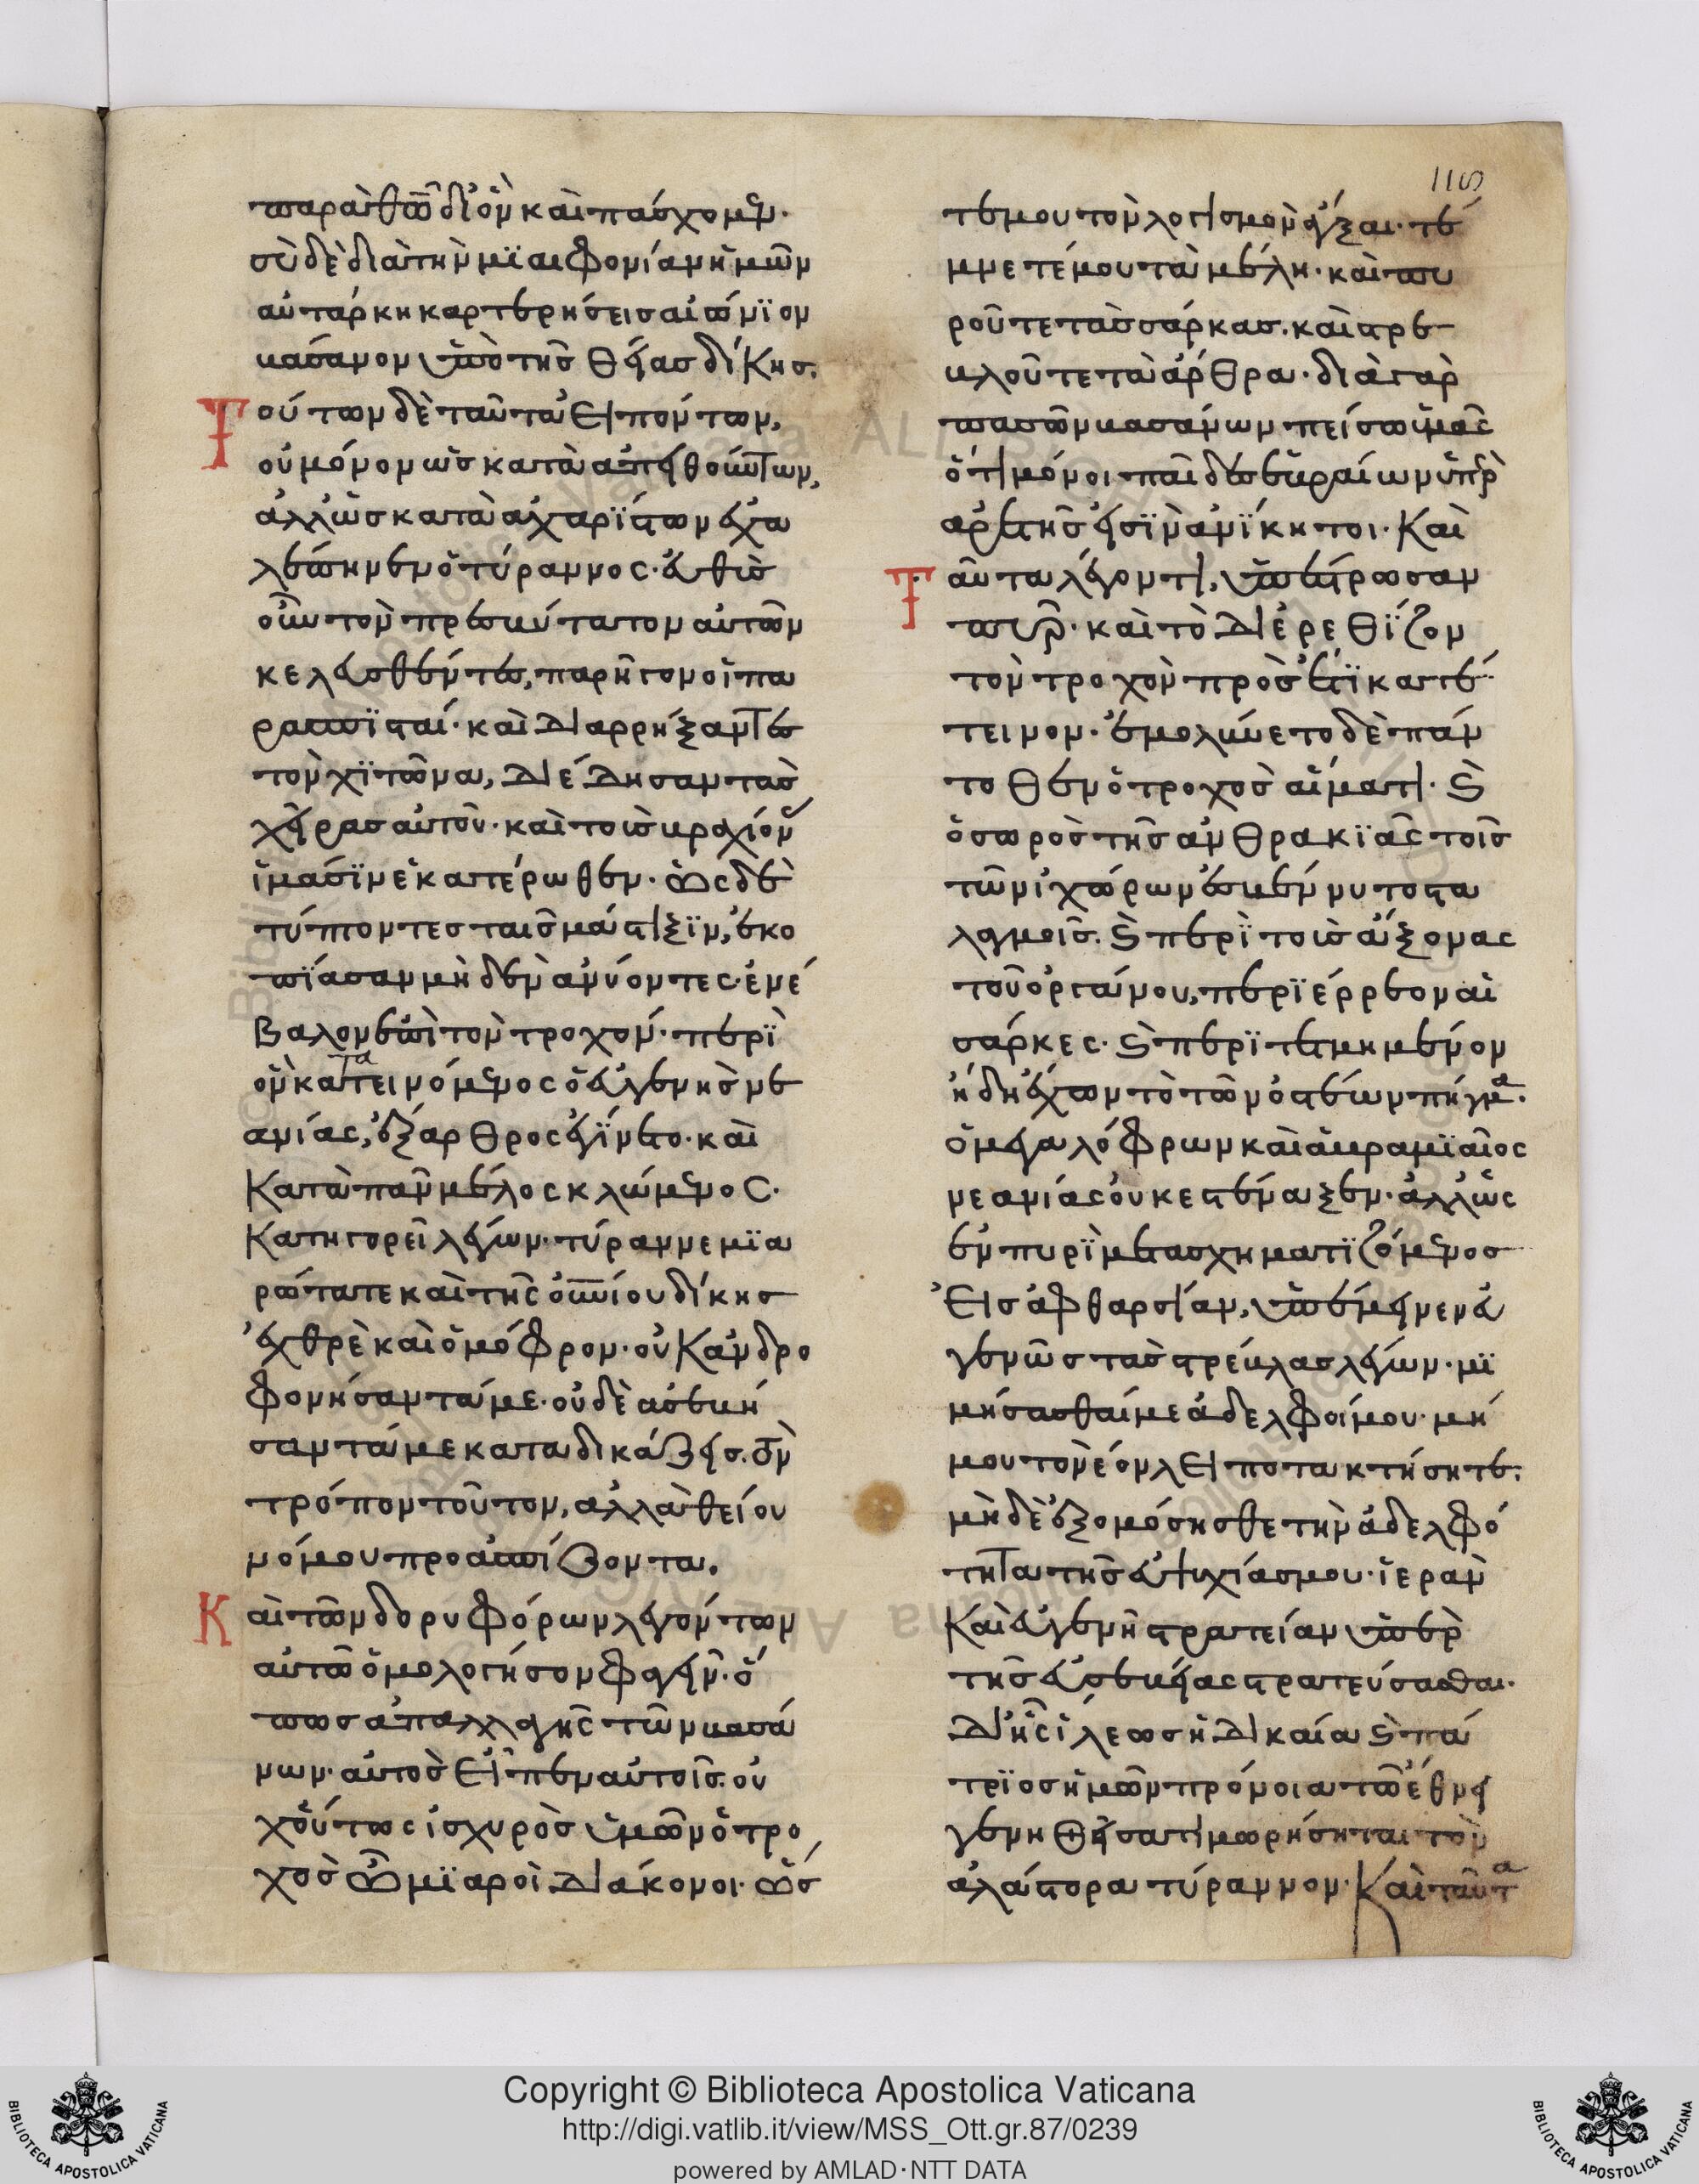 118
παρὰ θω̄ δι' ὃν καὶ πάσχομεν·
σὺ δὲ διὰ τὴν μϊαιφονίαν ἡμῶν
αὐτάρκη καρτερήσεισ αἰώνϊον
βάσανον ὑπὸ τῆσ θείασ δίκησ·
Τούτων δὲ ταῦτα εἰπόντων,
οὐ μόνον ὡσ κατὰ ἀπειθούντων,
ἀλλ' ὡσ κατὰ ἀχαρϊστων ἐχα
λέπηνεν ὁ τύραννος· εὐθὺσ
οὖν τὸν πρεσβύτατον αὐτῶν
κελευσθέντεσ, παρῆγον οἱ πα
ρασπϊσταί· καὶ διαρρήξαντεσ
τὸν χϊτῶνα, διέδησαν τὰσ
χεῖρασ αὐτοῦ· καὶ τοὺσ βραχίονασ
ἱμάσϊν ἑκατέρωθεν· ὡς δὲ
τύπτοντεσ ταῖσ μάστιξϊν, ἐκο
πϊάσαν μηδὲν ἀνύοντες· ἐνέ
βαλον ἐπὶ τὸν τροχόν· περϊ
ὃν κατατεινόμενος ὁ εὐγενὴσ νε
ανίας, ἔξαρθρος ἐγϊνετο· καὶ
Κατὰ πᾶν μέλος κλώμενος·
Κατηγορεῖ λέγων· τύραννε μϊα
ρώτατε καὶ τῆς οὐνίου δίκησ
ἐχθρὲ καὶ ὁμόφρον· οὐκ ἀνδρο
φονήσαντά με· οὐδὲ ἀσεβή
σαντά με καταδικάζεισ. τὸν
τρόπον τοῦτον, ἀλλὰ θείου
νόμου προασπίζοντα.
Καὶ τῶν δορυφόρων λεγόντων
αὐτῶ ὁμολόγησον φαγεῖν· ὅ
πωσ ἀπαλλαγῆς τῶν βασά
νων· αὐτὸσ εἶπεν αὐτοῖσ· οὐ
χ' οὕτως ἰσχυρὸσ ὑμῶν ὁ τρο
χὸσ ὦ μϊαροὶ διάκονοι· ὥσ
τε μου τὸν λογισμὸν ἄγξαι· τέ
μνετέ μου τὰ μέλη· καὶ πυ
ροῦτε τὰσ σάρκασ. καὶ στρε
βλοῦτε τὰ ἄρθρα· διὰ γὰρ
πασῶν βασάνων πείσω ὑμᾶς
ὅτι μόνοι παῖδεσ ἑβραίων ὑπὲρ
ἀρετῆσ εἰσϊν ἀνϊκητοι. Καὶ
Ταῦτα λέγοντι, ὑπέστρωσαν
πῦρ· καὶ τὸ διερεθϊζον
τὸν τροχὸν προσεπϊκατέ
τεινον. ἐμολύνετο δὲ πάν
τοθεν ὁ τροχὸσ αἵματι· καὶ
ὁ σωρὸσ τῆσ ἀνθρακϊᾶς τοῖσ
τῶν ἰχώρων ἐσβέννυτο στα
λαγμοῖσ. καὶ περϊ τοὺσ ἄξονας
τοῦ ὀργάνου, περϊέρρεον αἱ
σάρκες. καὶ περϊτετμημένον
ἤδη ἔχων τὸ τῶν ὀστέων πῆγμα.
ὁ μεγαλόφρων καὶ ἁβραμϊαῖος
νεανίας οὐκ ἐστέναξεν· ἀλλ' ὡς
ἐν πυρϊ μετασχηματϊζόμενοσ
Εἰσ ἀφθαρσίαν, ὑπέμεινεν εὐ
γενῶσ τὰσ στρέβλασ λέγων· μϊ
μήσασθαί με ἀδελφοί μου· μή
μου τὸν ἐὸν λειποτακτήσητε.
μὴ δὲ ἐξομόσησθε τὴν ἀδελφό
τητα τῆσ εὐψυχίασ μου· ἱερὰν
Καὶ εὐγενῆ στρατείαν ὑπὲρ
τῆσ εὐσεβείας στρατεύσασθαι.
Δι' ἧς ἵλεωσ ἡ δικαία καὶ πά
τρϊοσ ἡμῶν πρόνοια τῶ ἔθνει
γενηθεῖσα τιμωρήσηται τὸν
ἀλάστορα τύραννον. Καὶ ταῦτα
Copyright © Biblioteca Apostolica Vaticana
http://digi.vatlib.it/view/MSS_Ott.gr.87/0239
powered by AMLAD·NTT DATA
BIBLIOTECA APOSTOLICA VATICANA
BIBLIOTECA APOSTOLICA VATICANA